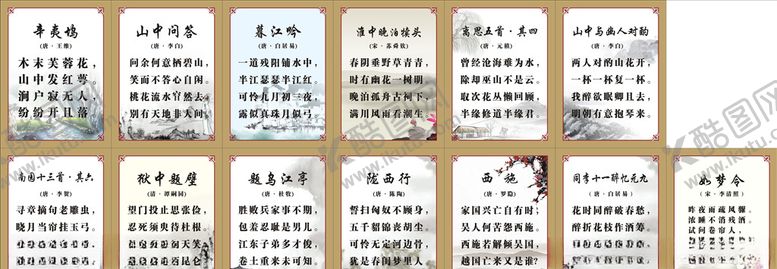 辛夷坞
(唐·王维)
木末芙蓉花，
山中发红萼。
涧户寂无人，
纷纷开且落。
山中问答
(唐·李白)
问余何意栖碧山，
笑而不答心自闲。
桃花流水窅然去，
别有天地非人间。
暮江吟
(唐·白居易)
一道残阳铺水中，
半江瑟瑟半江红。
可怜九月初三夜，
露似真珠月似弓。
淮中晚泊犊头
(宋·苏舜钦)
春阴垂野草青青，
时有幽花一树明。
晚泊孤舟古祠下，
满川风雨看潮生。
离思五首·其四
(唐·元稹)
曾经沧海难为水，
除却巫山不是云。
取次花丛懒回顾，
半缘修道半缘君。
山中与幽人对酌
(唐·李白)
两人对酌山花开，
一杯一杯复一杯。
我醉欲眠卿且去，
明朝有意抱琴来。
南园十三首·其六
(唐·李贺)
寻章摘句老雕虫，
晓月当帘挂玉弓。
狱中题壁
(清·谭嗣同)
望门投止思张俭，
忍死须臾待杜根。
我自横刀向天笑，
去留肝胆两昆仑。
题乌江亭
(唐·杜牧)
胜败兵家事不期，
包羞忍耻是男儿。
江东子弟多才俊，
卷土重来未可知。
陇西行
(唐·陈陶)
誓扫匈奴不顾身，
五千貂锦丧胡尘。
可怜无定河边骨，
犹是春闺梦里人。
西施
(唐·罗隐)
家国兴亡自有时，
吴人何苦怨西施。
西施若解倾吴国，
越国亡来又是谁？
同李十一醉忆元九
(唐·白居易)
花时同醉破春愁，
醉折花枝作酒筹。
如梦令
(宋·李清照)
昨夜雨疏风骤，
浓睡不消残酒。
试问卷帘人，